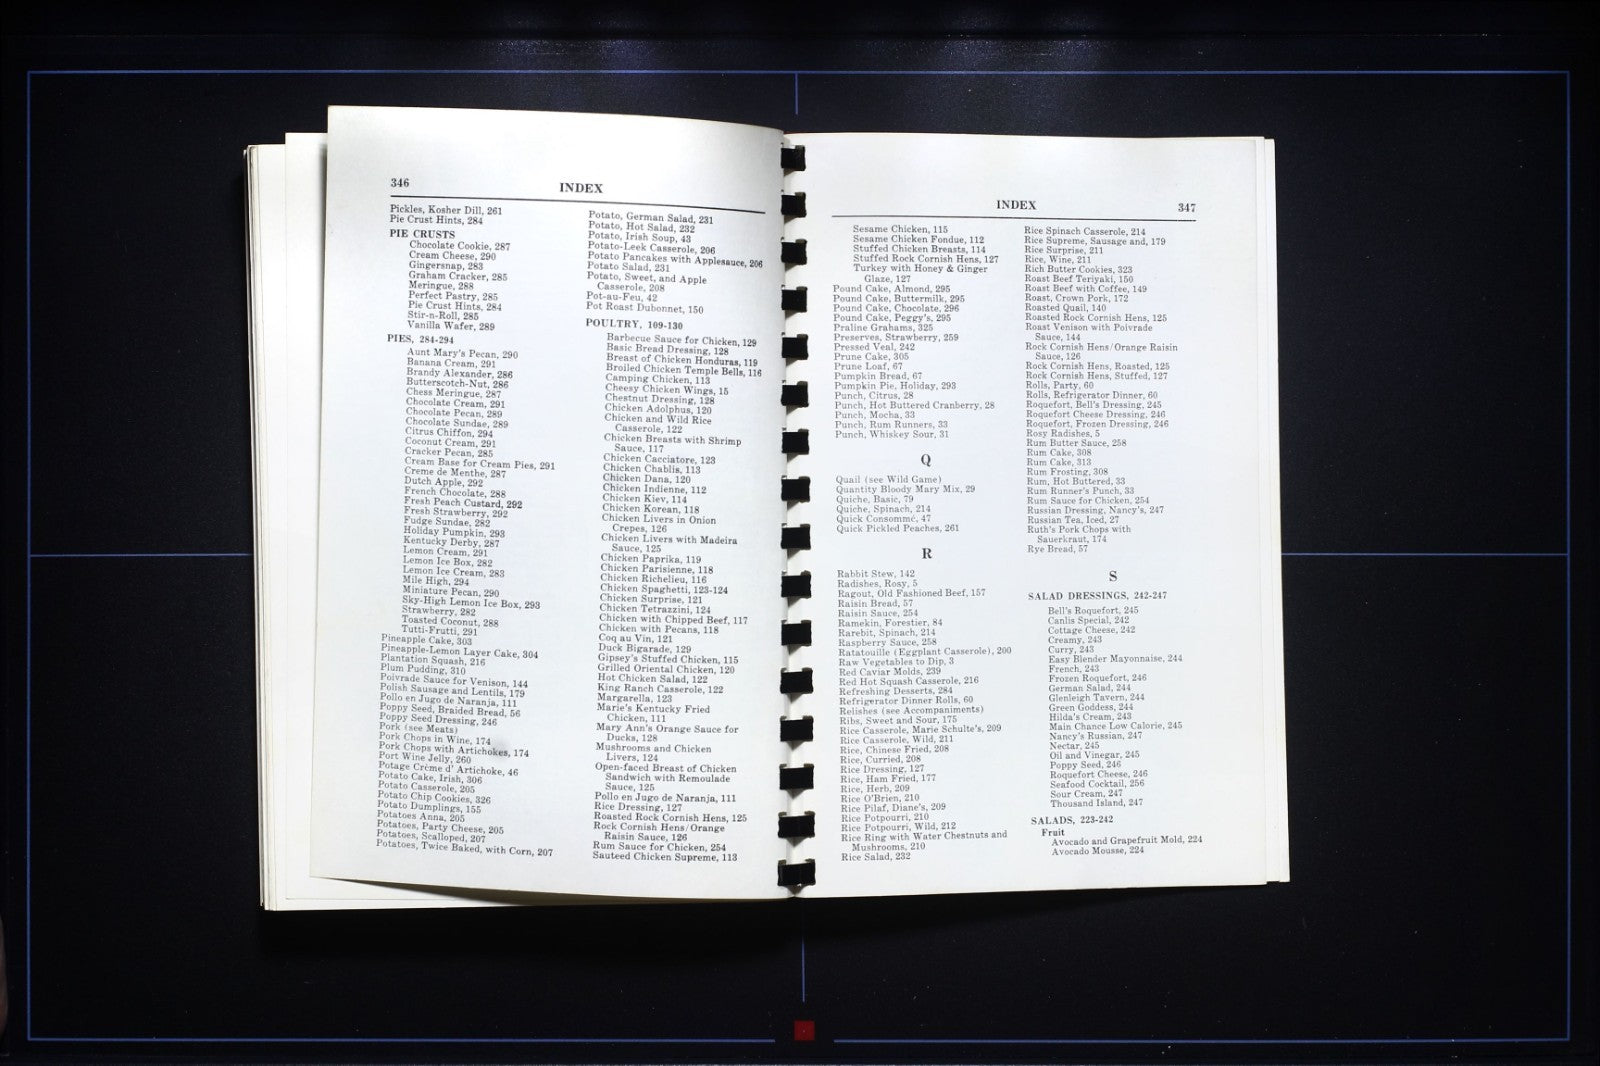 346
INDEX
Pickles, Kosher Dill, 261
Pie Crust Hints, 284
PIE CRUSTS
Chocolate Cookie, 287
Cream Cheese, 290
Gingersnap, 283
Graham Cracker, 285
Meringue, 288
Perfect Pastry, 285
Pie Crust Hints, 284
Stir-n-Roll, 285
Vanilla Wafer, 289
PIES, 284-294
Aunt Mary's Pecan, 290
Banana Cream, 291
Brandy Alexander, 286
Butterscotch-Nut, 286
Chess Meringue, 287
Chocolate Cream, 291
Chocolate Pecan, 289
Chocolate Sundae, 289
Citrus Chiffon, 294
Coconut Cream, 291
Cracker Pecan, 285
Cream Base for Cream Pies, 291
Creme de Menthe, 287
Dutch Apple, 292
French Chocolate, 288
Fresh Peach Custard, 292
Fresh Strawberry, 292
Fudge Sundae, 282
Holiday Pumpkin, 293
Kentucky Derby, 287
Lemon Cream, 291
Lemon Ice Box, 282
Lemon Ice Cream, 283
Mile High, 294
Miniature Pecan, 290
Sky-High Lemon Ice Box, 293
Strawberry, 282
Toasted Coconut, 288
Tutti-Frutti, 291
Pineapple Cake, 303
Pineapple-Lemon Layer Cake, 304
Plantation Squash, 216
Plum Pudding, 310
Poivrade Sauce for Venison, 144
Polish Sausage and Lentils, 179
Pollo en Jugo de Naranja, 111
Poppy Seed, Braided Bread, 56
Poppy Seed Dressing, 246
Pork (see Meats)
Pork Chops in Wine, 174
Pork Chops with Artichokes, 174
Port Wine Jelly, 260
Potage Crème d' Artichoke, 46
Potato Cake, Irish, 306
Potato Casserole, 205
Potato Chip Cookies, 326
Potato Dumplings, 155
Potatoes Anna, 205
Potatoes, Party Cheese, 205
Potatoes, Scalloped, 207
Potatoes, Twice Baked, with Corn, 207
Potato, German Salad, 231
Potato, Hot Salad, 232
Potato, Irish Soup, 43
Potato-Leek Casserole, 206
Potato Pancakes with Applesauce, 206
Potato Salad, 231
Potato, Sweet, and Apple
Casserole, 208
Pot-au-Feu, 42
Pot Roast Dubonnet, 150
POULTRY, 109-130
Barbecue Sauce for Chicken, 129
Basic Bread Dressing, 128
Breast of Chicken Honduras, 119
Broiled Chicken Temple Bells, 116
Camping Chicken, 113
Cheesy Chicken Wings, 15
Chestnut Dressing, 128
Chicken Adolphus, 120
Chicken and Wild Rice
Casserole, 122
Chicken Breasts with Shrimp
Sauce, 117
Chicken Cacciatore, 123
Chicken Chablis, 113
Chicken Dana, 120
Chicken Indienne, 112
Chicken Kiev, 114
Chicken Korean, 118
Chicken Livers in Onion
Crepes, 126
Chicken Livers with Madeira
Sauce, 125
Chicken Paprika, 119
Chicken Parisienne, 118
Chicken Richelieu, 116
Chicken Spaghetti, 123-124
Chicken Surprise, 121
Chicken Tetrazzini, 124
Chicken with Chipped Beef, 117
Chicken with Pecans, 118
Coq au Vin, 121
Duck Bigarade, 129
Gipsey's Stuffed Chicken, 115
Grilled Oriental Chicken, 120
Hot Chicken Salad, 122
King Ranch Casserole, 122
Margarella, 123
Marie's Kentucky Fried
Chicken, 111
Mary Ann's Orange Sauce for
Ducks, 128
Mushrooms and Chicken
Livers, 124
Open-faced Breast of Chicken
Sandwich with Remoulade
Sauce, 125
Pollo en Jugo de Naranja, 111
Rice Dressing, 127
Roasted Rock Cornish Hens, 125
Rock Cornish Hens/Orange
Raisin Sauce, 126
Rum Sauce for Chicken, 254
Sauteed Chicken Supreme, 113
INDEX
347
Sesame Chicken, 115
Sesame Chicken Fondue, 112
Stuffed Chicken Breasts, 114
Stuffed Rock Cornish Hens, 127
Turkey with Honey & Ginger
Glaze, 127
Pound Cake, Almond, 295
Pound Cake, Buttermilk, 295
Pound Cake, Chocolate, 296
Pound Cake, Peggy's, 295
Praline Grahams, 325
Preserves, Strawberry, 259
Pressed Veal, 242
Prune Cake, 305
Prune Loaf, 67
Pumpkin Bread, 67
Pumpkin Pie, Holiday, 293
Punch, Citrus, 28
Punch, Hot Buttered Cranberry, 28
Punch, Mocha, 33
Punch, Rum Runners, 33
Punch, Whiskey Sour, 31
Q
Quail (see Wild Game)
Quantity Bloody Mary Mix, 29
Quiche, Basic, 79
Quiche, Spinach, 214
Quick Consommé, 47
Quick Pickled Peaches, 261
R
Rabbit Stew, 142
Radishes, Rosy, 5
Ragout, Old Fashioned Beef, 157
Raisin Bread, 57
Raisin Sauce, 254
Ramekin, Forestier, 84
Rarebit, Spinach, 214
Raspberry Sauce, 258
Ratatouille (Eggplant Casserole), 200
Raw Vegetables to Dip, 3
Red Caviar Molds, 239
Red Hot Squash Casserole, 216
Refreshing Desserts, 284
Refrigerator Dinner Rolls, 60
Relishes (see Accompaniments)
Ribs, Sweet and Sour, 175
Rice Casserole, Marie Schulte's, 209
Rice Casserole, Wild, 211
Rice, Chinese Fried, 208
Rice, Curried, 208
Rice Dressing, 127
Rice, Ham Fried, 177
Rice, Herb, 209
Rice O'Brien, 210
Rice Pilaf, Diane's, 209
Rice Potpourri, 210
Rice Potpourri, Wild, 212
Rice Ring with Water Chestnuts and
Mushrooms, 210
Rice Salad, 232
Rice Spinach Casserole, 214
Rice Supreme, Sausage and, 179
Rice Surprise, 211
Rice, Wine, 211
Rich Butter Cookies, 323
Roast Beef Teriyaki, 150
Roast Beef with Coffee, 149
Roast, Crown Pork, 172
Roasted Quail, 140
Roasted Rock Cornish Hens, 125
Roast Venison with Poivrade
Sauce, 144
Rock Cornish Hens/Orange Raisin
Sauce, 126
Rock Cornish Hens, Roasted, 125
Rock Cornish Hens, Stuffed, 127
Rolls, Party, 60
Rolls, Refrigerator Dinner, 60
Roquefort, Bell's Dressing, 245
Roquefort Cheese Dressing, 246
Roquefort, Frozen Dressing, 246
Rosy Radishes, 5
Rum Butter Sauce, 258
Rum Cake, 308
Rum Cake, 313
Rum Frosting, 308
Rum, Hot Buttered, 33
Rum Runner's Punch, 33
Rum Sauce for Chicken, 254
Russian Dressing, Nancy's, 247
Russian Tea, Iced, 27
Ruth's Pork Chops with
Sauerkraut, 174
Rye Bread, 57
S
SALAD DRESSINGS, 242-247
Bell's Roquefort, 245
Canlis Special, 242
Cottage Cheese, 242
Creamy, 243
Curry, 243
Easy Blender Mayonnaise, 244
French, 243
Frozen Roquefort, 246
German Salad, 244
Glenleigh Tavern, 244
Green Goddess, 244
Hilda's Cream, 243
Main Chance Low Calorie, 245
Nancy's Russian, 247
Nectar, 245
Oil and Vinegar, 245
Poppy Seed, 246
Roquefort Cheese, 246
Seafood Cocktail, 256
Sour Cream, 247
Thousand Island, 247
SALADS, 223-242
Fruit
Avocado and Grapefruit Mold, 224
Avocado Mousse, 224